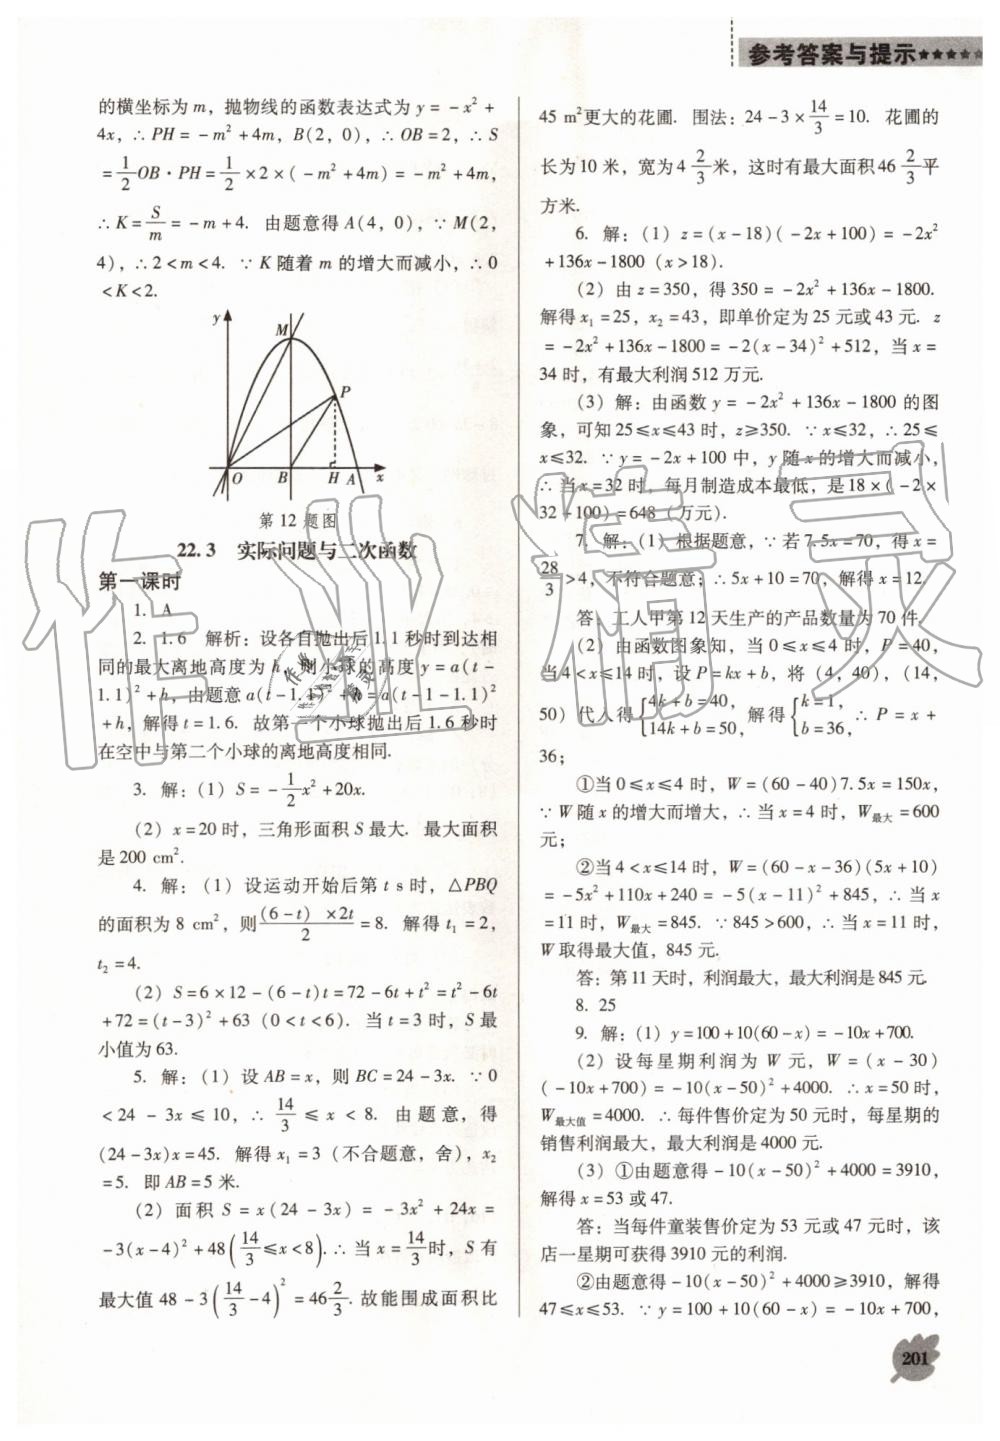 参考答案与提示★★★★★
的横坐标为 m，抛物线的函数表达式为 y=-x²+
4x，∴PH=-m²+4m，B(2，0)，∴OB=2，∴S
=1/2 OB·PH=1/2×2×(-m²+4m)=-m²+4m，
∴K=S/m=-m+4. 由题意得A(4，0)，∵M(2，
4)，∴2<m<4. ∵K随着 m 的增大而减小，∴0
<K<2.
y
M
P
O B H A x
第12题图
22.3 实际问题与二次函数
第一课时
1. A
2. 1.6 解析：设各自抛出后1.1秒时到达相
同的最大离地高度为h，则小球的高度 y=a(t-
1.1)²+h，由题意 a(t-1.1)²+h=a(t-1-1.1)²
+h，解得t=1.6. 故第一个小球抛出后1.6秒时
在空中与第二个小球的离地高度相同.
3. 解：(1) S=-1/2 x²+20x.
(2) x=20时，三角形面积S最大. 最大面积
是200 cm².
4. 解：(1) 设运动开始后第 t s时，△PBQ
的面积为8 cm²，则 (6-t) ×2t/2=8. 解得t₁=2，
t₂=4.
(2) S=6×12-(6-t)t=72-6t+t²=t²-6t
+72=(t-3)²+63 (0<t<6). 当t=3时，S最
小值为63.
5. 解：(1) 设AB=x，则BC=24-3x. ∵0
<24-3x≤10，∴14/3≤x<8. 由题意，得
(24-3x)x=45. 解得x₁=3（不合题意，舍），x₂
=5. 即AB=5米.
(2) 面积 S=x(24-3x)=-3x²+24x=
-3(x-4)²+48(14/3≤x<8). ∴当x=14/3时，S有
最大值 48-3(14/3-4)²=46 2/3. 故能围成面积比
45 m²更大的花圃. 围法：24-3×14/3=10. 花圃的
长为10米，宽为4 2/3米，这时有最大面积46 2/3平
方米.
6. 解：(1) z=(x-18)(-2x+100)=-2x²
+136x-1800 (x>18).
(2) 由z=350，得350=-2x²+136x-1800.
解得x₁=25，x₂=43，即单价定为25元或43元. z
=-2x²+136x-1800=-2(x-34)²+512，当x=
34时，有最大利润512万元.
(3) 解：由函数y=-2x²+136x-1800的图
象，可知25≤x≤43时，z≥350. ∵x≤32，∴25≤
x≤32. ∵y=-2x+100中，y随x的增大而减小，
∴当x=32时，每月制造成本最低，是18×(-2×
32+100)=648（万元）.
7. 解：(1) 根据题意，∵若7.5x=70，得x=
28/3>4，不符合题意；∴5x+10=70，解得x=12.
答：工人甲第12天生产的产品数量为70件.
(2) 由函数图象知，当0≤x≤4时，P=40，
当4<x≤14时，设P=kx+b，将 (4，40)，(14，
50) 代入得{4k+b=40，14k+b=50，解得{k=1，b=36，∴P=x+
36；
①当0≤x≤4时，W=(60-40)7.5x=150x，
∵W随x的增大而增大，∴当x=4时，W最大=600
元；
②当4<x≤14时，W=(60-x-36)(5x+10)
=-5x²+110x+240=-5(x-11)²+845，∴当x
=11时，W最大=845. ∵845>600，∴当x=11时，
W取得最大值，845元.
答：第11天时，利润最大，最大利润是845元.
8. 25
9. 解：(1) y=100+10(60-x)=-10x+700.
(2) 设每星期利润为W元，W=(x-30)
(-10x+700)=-10(x-50)²+4000. ∴x=50时，
W最大值=4000. ∴每件售价定为50元时，每星期的
销售利润最大，最大利润是4000元.
(3) ①由题意得-10(x-50)²+4000=3910，
解得x=53或47.
答：当每件童装售价定为53元或47元时，该
店一星期可获得3910元的利润.
②由题意得-10(x-50)²+4000≥3910，解得
47≤x≤53. ∵y=100+10(60-x)=-10x+700，
201
作业精灵